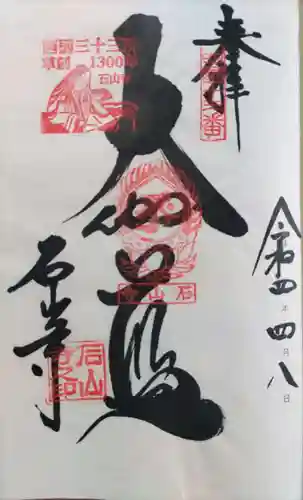 奉拝
西国十三番
西国三十三所
草創1300年
石山寺
大伽藍
石山寺
令和四年四月八日
石山寺
石山寺之印